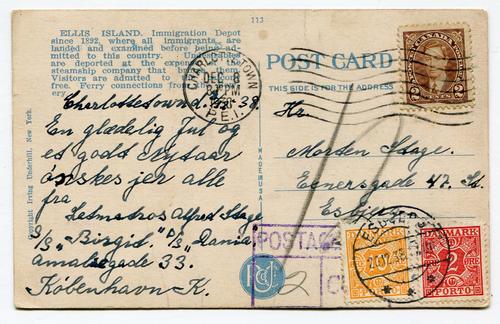 113
ELLIS ISLAND. Immigration Depot
since 1892, where all immigrants are
landed and examined before being ad-
mitted to this country. Undesirables
are deported at the expense of the
steamship company that brought them
Visitors are admitted to
free. Ferry connections from
ery
POST CARD
THIS SIDE IS FOR THE ADDRESS
CHARLOTTETOWN
DEC 8
PM
1938
P.E.I.
CANADA
2 2
Charlottetown 38.
En glædelig Jul og
et godt nytaar
ønskes jer alle
fra
Alfred Stage
S/S "Birgid." P/S "Dania"
Amaliegade 33.
København-K.
Hr.
Morten Stage.
Egnersgade 47. St.
Esbjerg
Copyright Irving Underhill, New York.
MADE IN U.S.A.
POSTAG
C
2
ESBJERG
20.12.38
DANMARK
PORTO
DANMARK
2
ØRE
PORTO